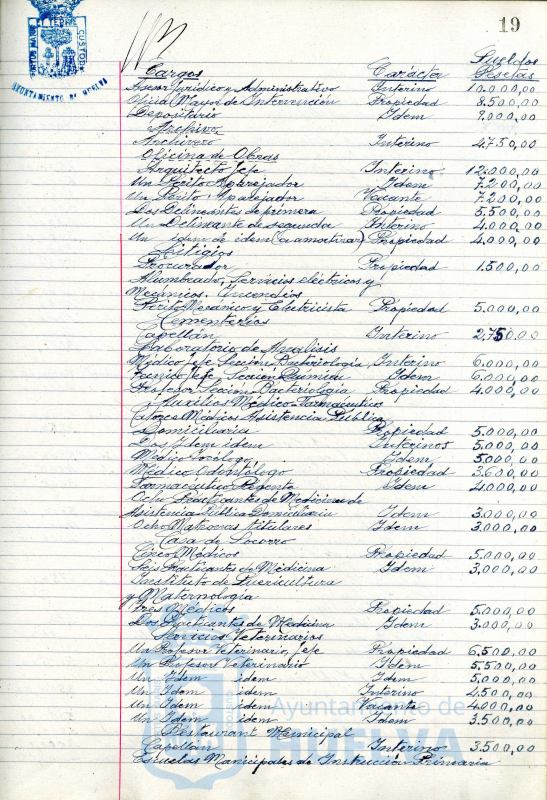 19
AYUNTAMIENTO DE HUELVA
Cargos Carácter Sueldos Pesetas
Asesor Jurídico y Administrativo Interino 10.000,00
Oficial Mayor de Intervención Propiedad 8.500,00
Depositario Idem 9.000,00
Archivo
Archivero Interino 4.750,00
Oficina de Obras
Arquitecto Jefe Interino 12.000,00
Un Perito Aparejador Idem 7.200,00
Un Perito Aparejador Vacante 7.200,00
Dos Delineantes de primera Propiedad 5.500,00
Un Delineante de segunda Interino 4.000,00
Un idem de idem (a amortizar) Propiedad 4.000,00
Litigios
Procurador Propiedad 1.500,00
Alumbrado, Servicios eléctricos y
Mecánicos. Incendios
Perito Mecánico y Electricista Propiedad 5.000,00
Cementerios
Capellán Interino 2,750,00
Laboratorio de Análisis
Médico Jefe Sección Bacteriología Interino 6.000,00
Técnico Jefe Sección Química Idem 6.000,00
Profesor Sección Bacteriología Propiedad 4.000,00
Auxilios Médico-Farmacéutico
Catorce Médicos Asistencia Pública
Domiciliaria Propiedad 5.000,00
Dos Idem idem Interinos 5.000,00
Médico Tocólogo Idem 5.000,00
Médico Odontólogo Propiedad 3.600,00
Farmacéutico Regente Idem 4.000,00
Ocho Practicantes de Medicina de
Asistencia Pública Domiciliaria Idem 3.000,00
Ocho Matronas titulares Idem 3.000,00
Casa de Socorro
Cinco Médicos Propiedad 5.000,00
Seis Practicantes de Medicina Idem 3.000,00
Instituto de Puericultura
y Maternología
Tres Médicos Propiedad 5.000,00
Dos Practicantes de Medicina Idem 3.000,00
Servicios Veterinarios
Un Profesor Veterinario Jefe Propiedad 6.500,00
Un Profesor Veterinario Idem 5.500,00
Un Idem idem Idem 5.000,00
Un Idem idem Interino 4.500,00
Un Idem idem Vacante 4.000,00
Un Idem idem Idem 3.500,00
Restaurant Municipal
Capellán Interino 3.500,00
Escuelas Municipales de Instrucción Primaria
Ayuntamiento de
HUELVA